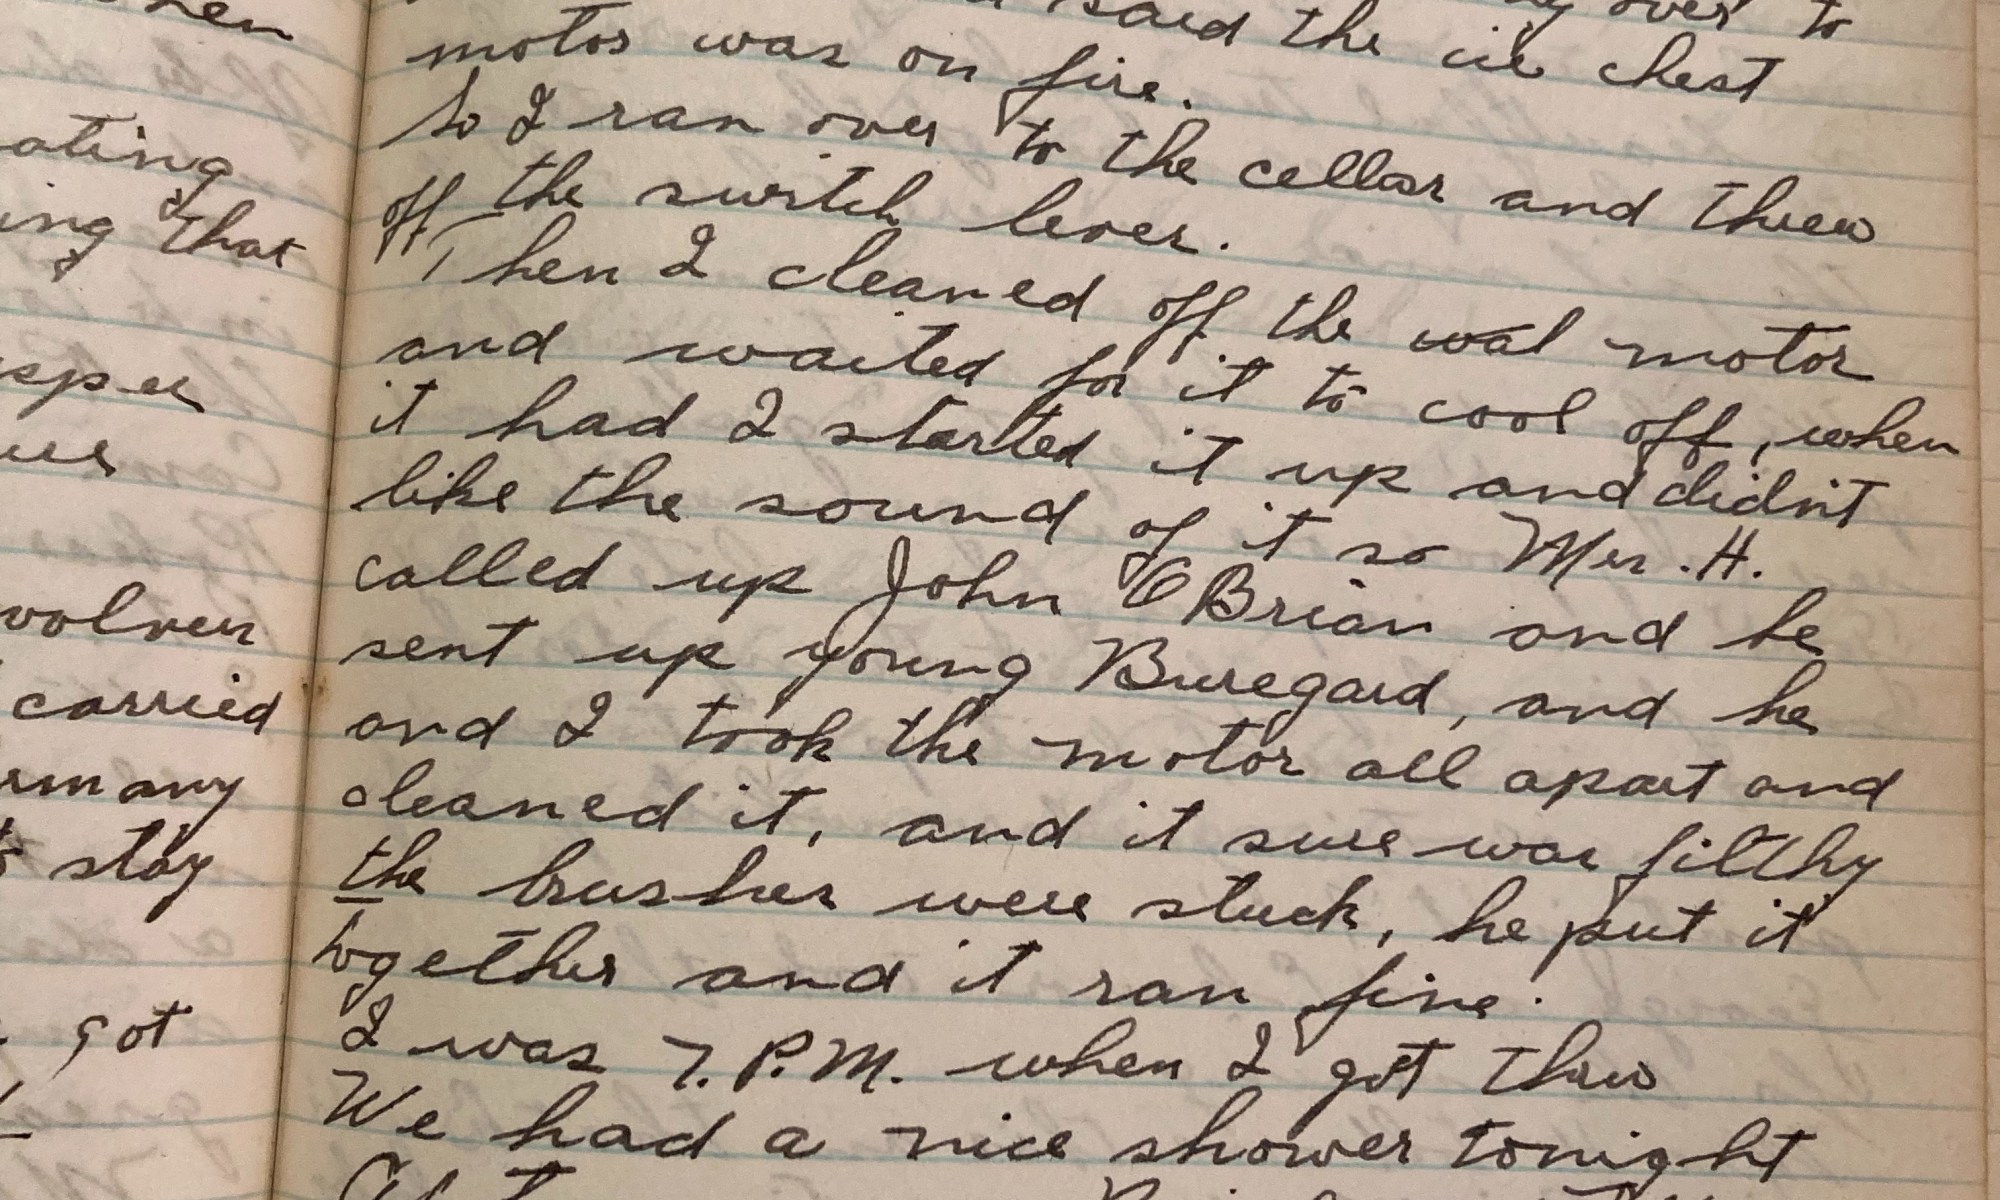 hen
ating
ing that
volver
carried
many
stay
got
said the ice chest over to
motor was on fire.
So I ran over to the cellar and threw
off the switch lever.
Then I cleaned off the motor
and waited for it to cool off, when
it had I started it up and didn't
like the sound of it so Mrs. H.
called up John O Brian and he
sent up young Buregard, and he
and I took the motor all apart and
cleaned it, and it sure was filthy
the brushes were stuck, he put it
together and it ran fine.
I was 7. P.M. when I got thru
We had a nice shower tonight